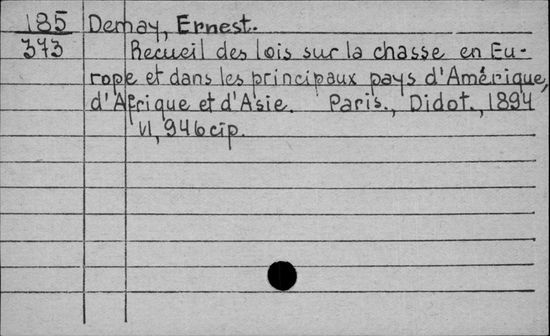 185 Demay, Ernest.
373 Recueil des lois sur la chasse en Eu-
rope et dans les principaux pays d'Amérique,
d'Afrique et d'Asie. Paris., Didot., 1894
VI, 946 cip.